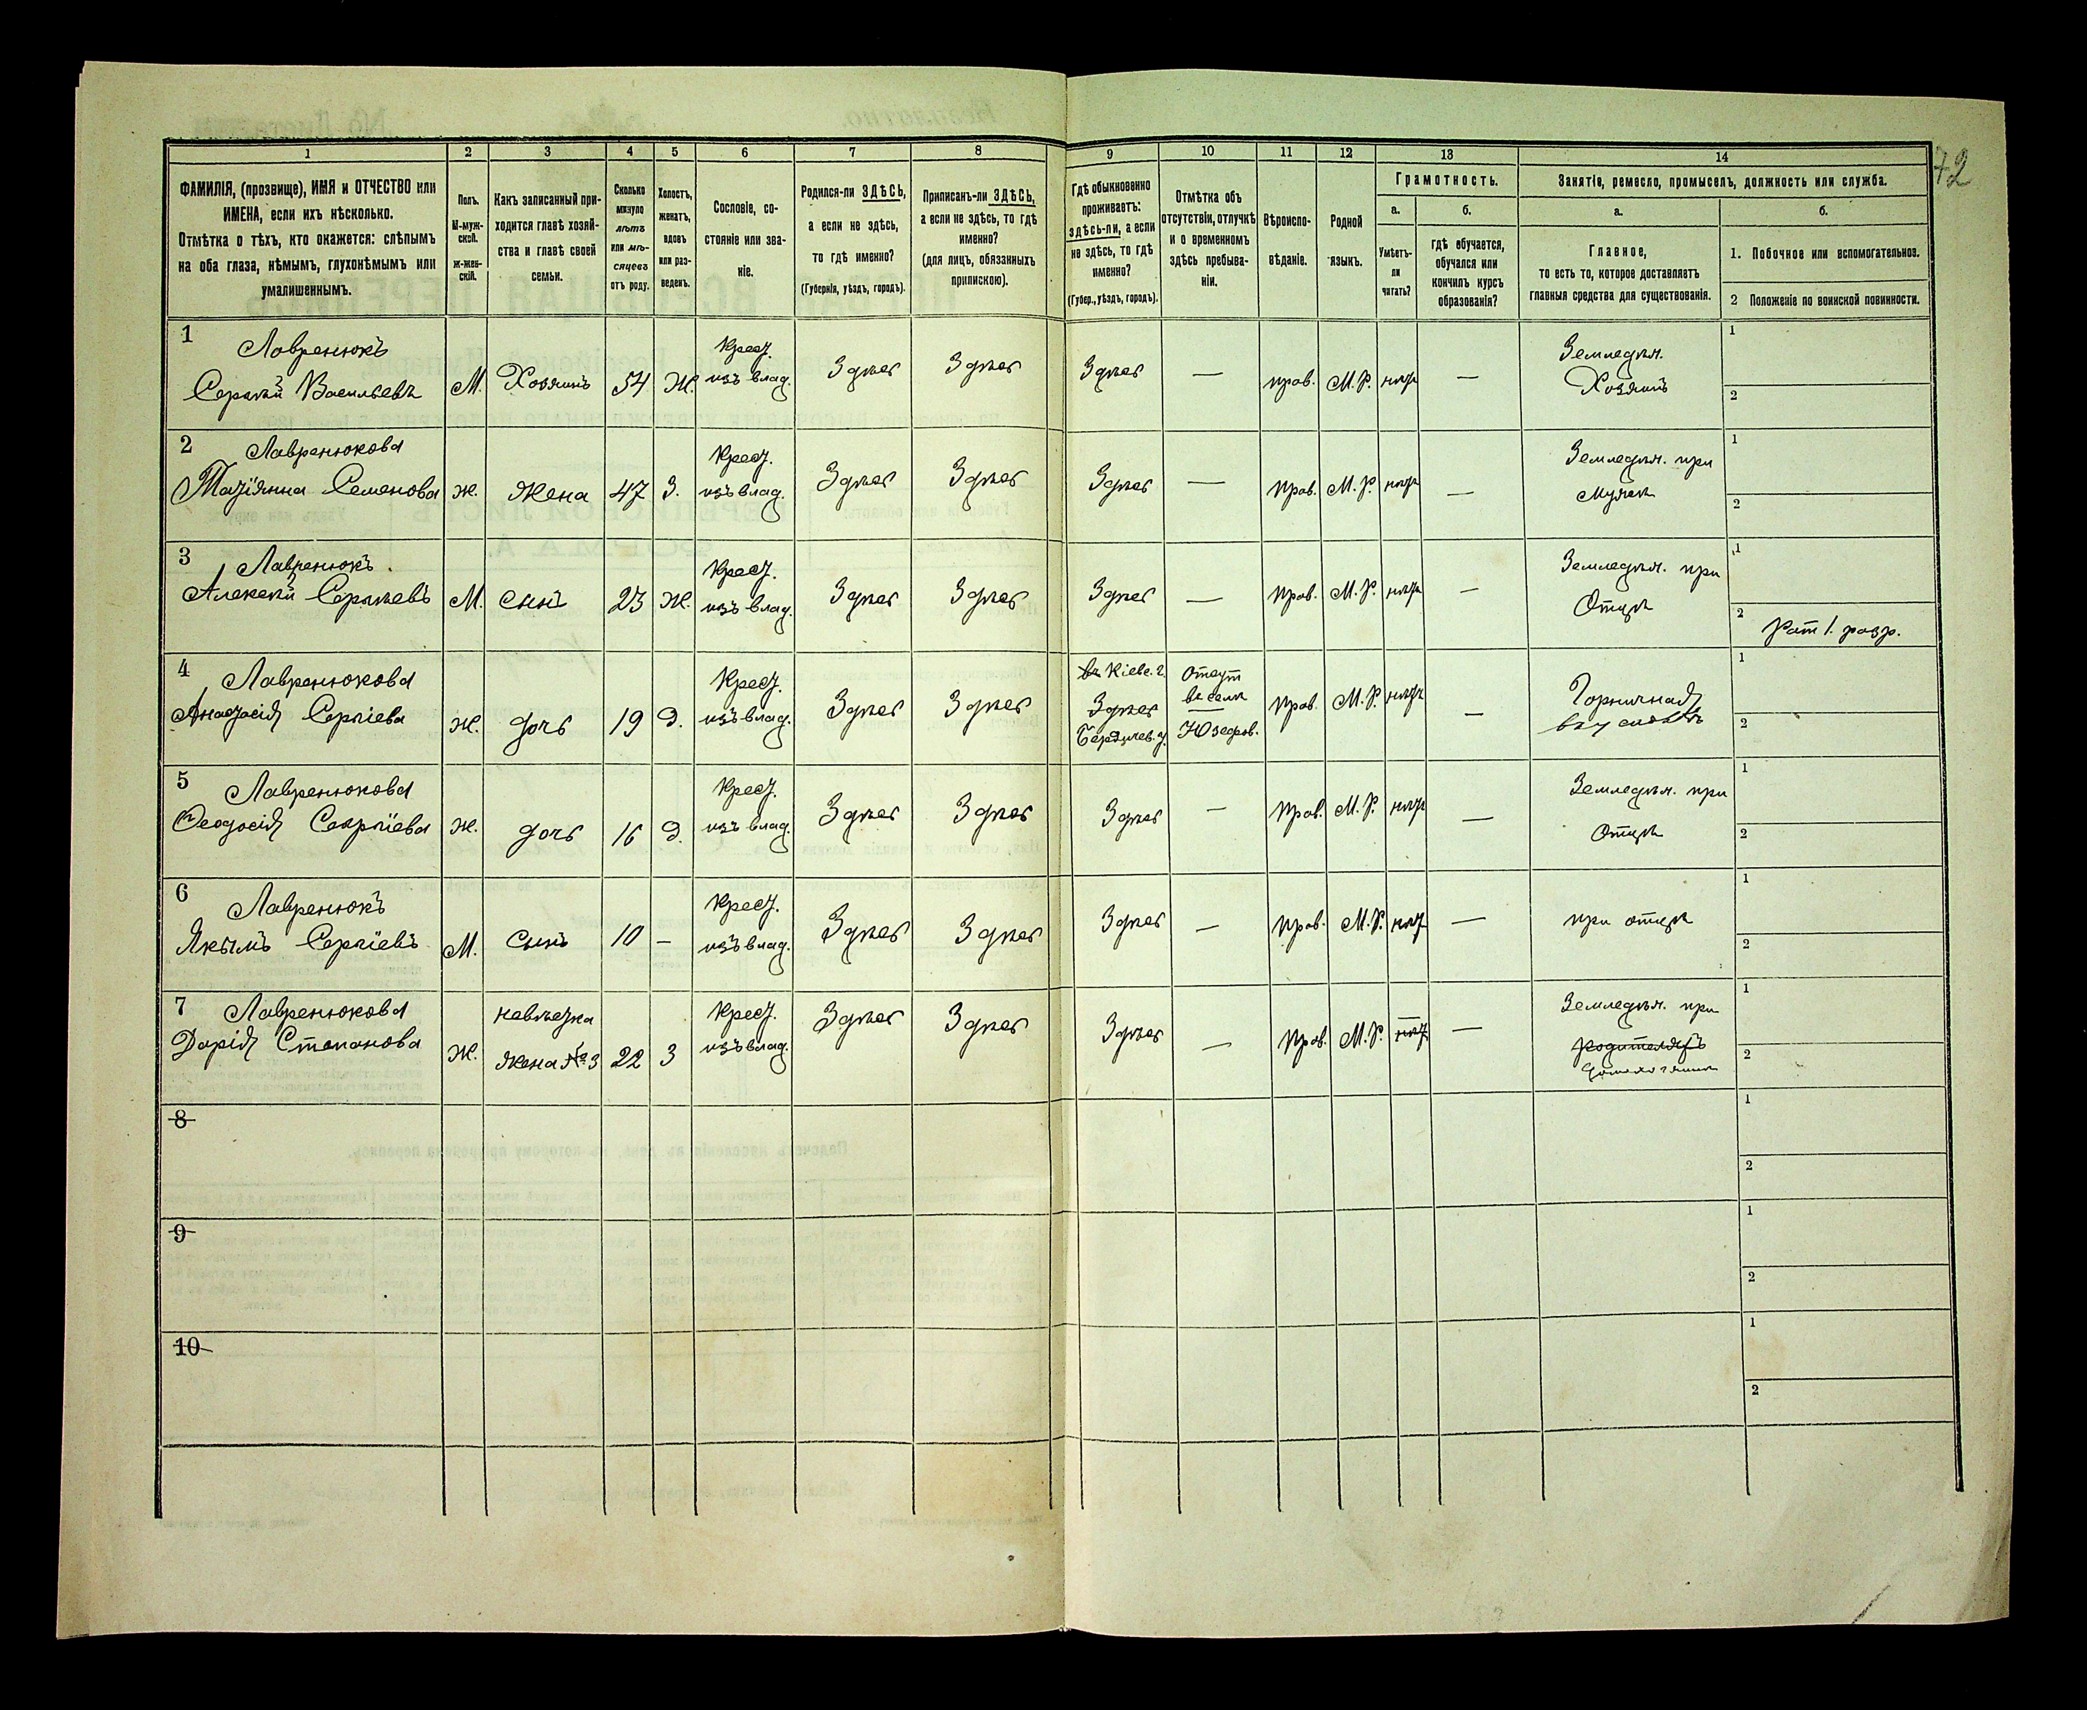 72
1 2 3 4 5 6 7 8 9 10 11 12 13 14
ФАМИЛІЯ, (прозвище), ИМЯ и ОТЧЕСТВО или
ИМЕНА, если ихъ нѣсколько.
Отмѣтка о тѣхъ, кто окажется: слѣпымъ
на оба глаза, нѣмымъ, глухонѣмымъ или
умалишеннымъ.
Полъ.
М-муж-
ской.
Ж-жен-
скій.
Какъ записанный при-
ходится главѣ хозяй-
ства и главѣ своей
семьи.
Сколько
минуло
лѣтъ
или мѣ-
сяцевъ
отъ роду.
Холостъ,
женатъ,
вдовъ
или раз-
веденъ.
Сословіе, со-
стояніе или зва-
ніе.
Родился-ли ЗДѢСЬ,
а если не здѣсь,
то гдѣ именно?
(Губернія, уѣздъ, городъ).
Приписанъ-ли ЗДѢСЬ,
а если не здѣсь, то гдѣ
именно?
(для лицъ, обязанныхъ
припискою).
Гдѣ обыкновенно
проживаетъ:
здѣсь-ли, а если
не здѣсь, то гдѣ
именно?
(Губер., уѣздъ, городъ).
Отмѣтка объ
отсутствіи, отлучкѣ
и о временномъ
здѣсь пребыва-
ніи.
Вѣроиспо-
вѣданіе.
Родной
языкъ.
Грамотность.
а.
Умѣетъ-
ли
читать?
б.
гдѣ обучается,
обучался или
кончилъ курсъ
образованія?
Занятіе, ремесло, промыселъ, должность или служба.
а.
Главное,
то есть то, которое доставляетъ
главныя средства для существованія.
б.
1. Побочное или вспомогательное.
2 Положеніе по воинской повинности.
1 Лавренюкъ
Сергѣй Васильевъ М. Хозяинъ 54 Ж. Крест. изъ влад. Здѣсь Здѣсь Здѣсь — прав. М.Р. нѣтъ — Земледѣл. Хозяинъ 1 2
2 Лавренюкова
Татіянна Семенова ж. Жена 47 З. Крест. изъ влад. Здѣсь Здѣсь Здѣсь — прав. М.Р. нѣтъ — Земледѣл. при мужѣ 1 2
3 Лавренюкъ
Алексѣй Сергѣевъ М. сынъ 23 Ж. Крест. изъ влад. Здѣсь Здѣсь Здѣсь — прав. М.Р. нѣтъ — Земледѣл. при Отцѣ 1 2 Рат 1. разр.
4 Лавренюкова
Анастасія Сергіева ж. дочь 19 Д. Крест. изъ влад. Здѣсь Здѣсь въ Кіевс. г. Здѣсь Бердичев. у. Отсут въ селѣ Юзефов. прав. М.Р. нѣтъ — Горничная 1 2
5 Лавренюкова
Ѳеодосія Сергіева ж. дочь 16 Д. Крест. изъ влад. Здѣсь Здѣсь Здѣсь — прав. М.Р. нѣтъ — Земледѣл. при Отцѣ 1 2
6 Лавренюкъ
Якымъ Сергіевъ М. сынъ 10 — Крест. изъ влад. Здѣсь Здѣсь Здѣсь — прав. М.Р. нѣт — при отцѣ 1 2
7 Лавренюкова
Дарія Степанова ж. невѣстка жена № 3 22 З Крест. изъ влад. Здѣсь Здѣсь Здѣсь — прав. М.Р. нѣт — Земледѣл. при родителяхъ 1 2
8 1 2
9 1 2
10 1 2